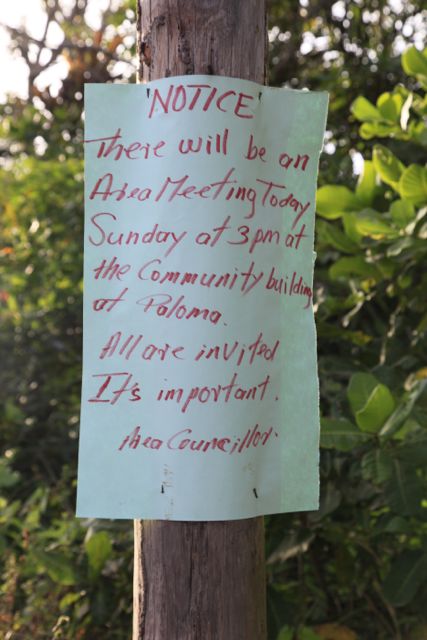 'NOTICE'
There will be an
Area Meeting Today
Sunday at 3pm at
the Community building
at Paloma.
All are invited
It's important.
Area Councillor.